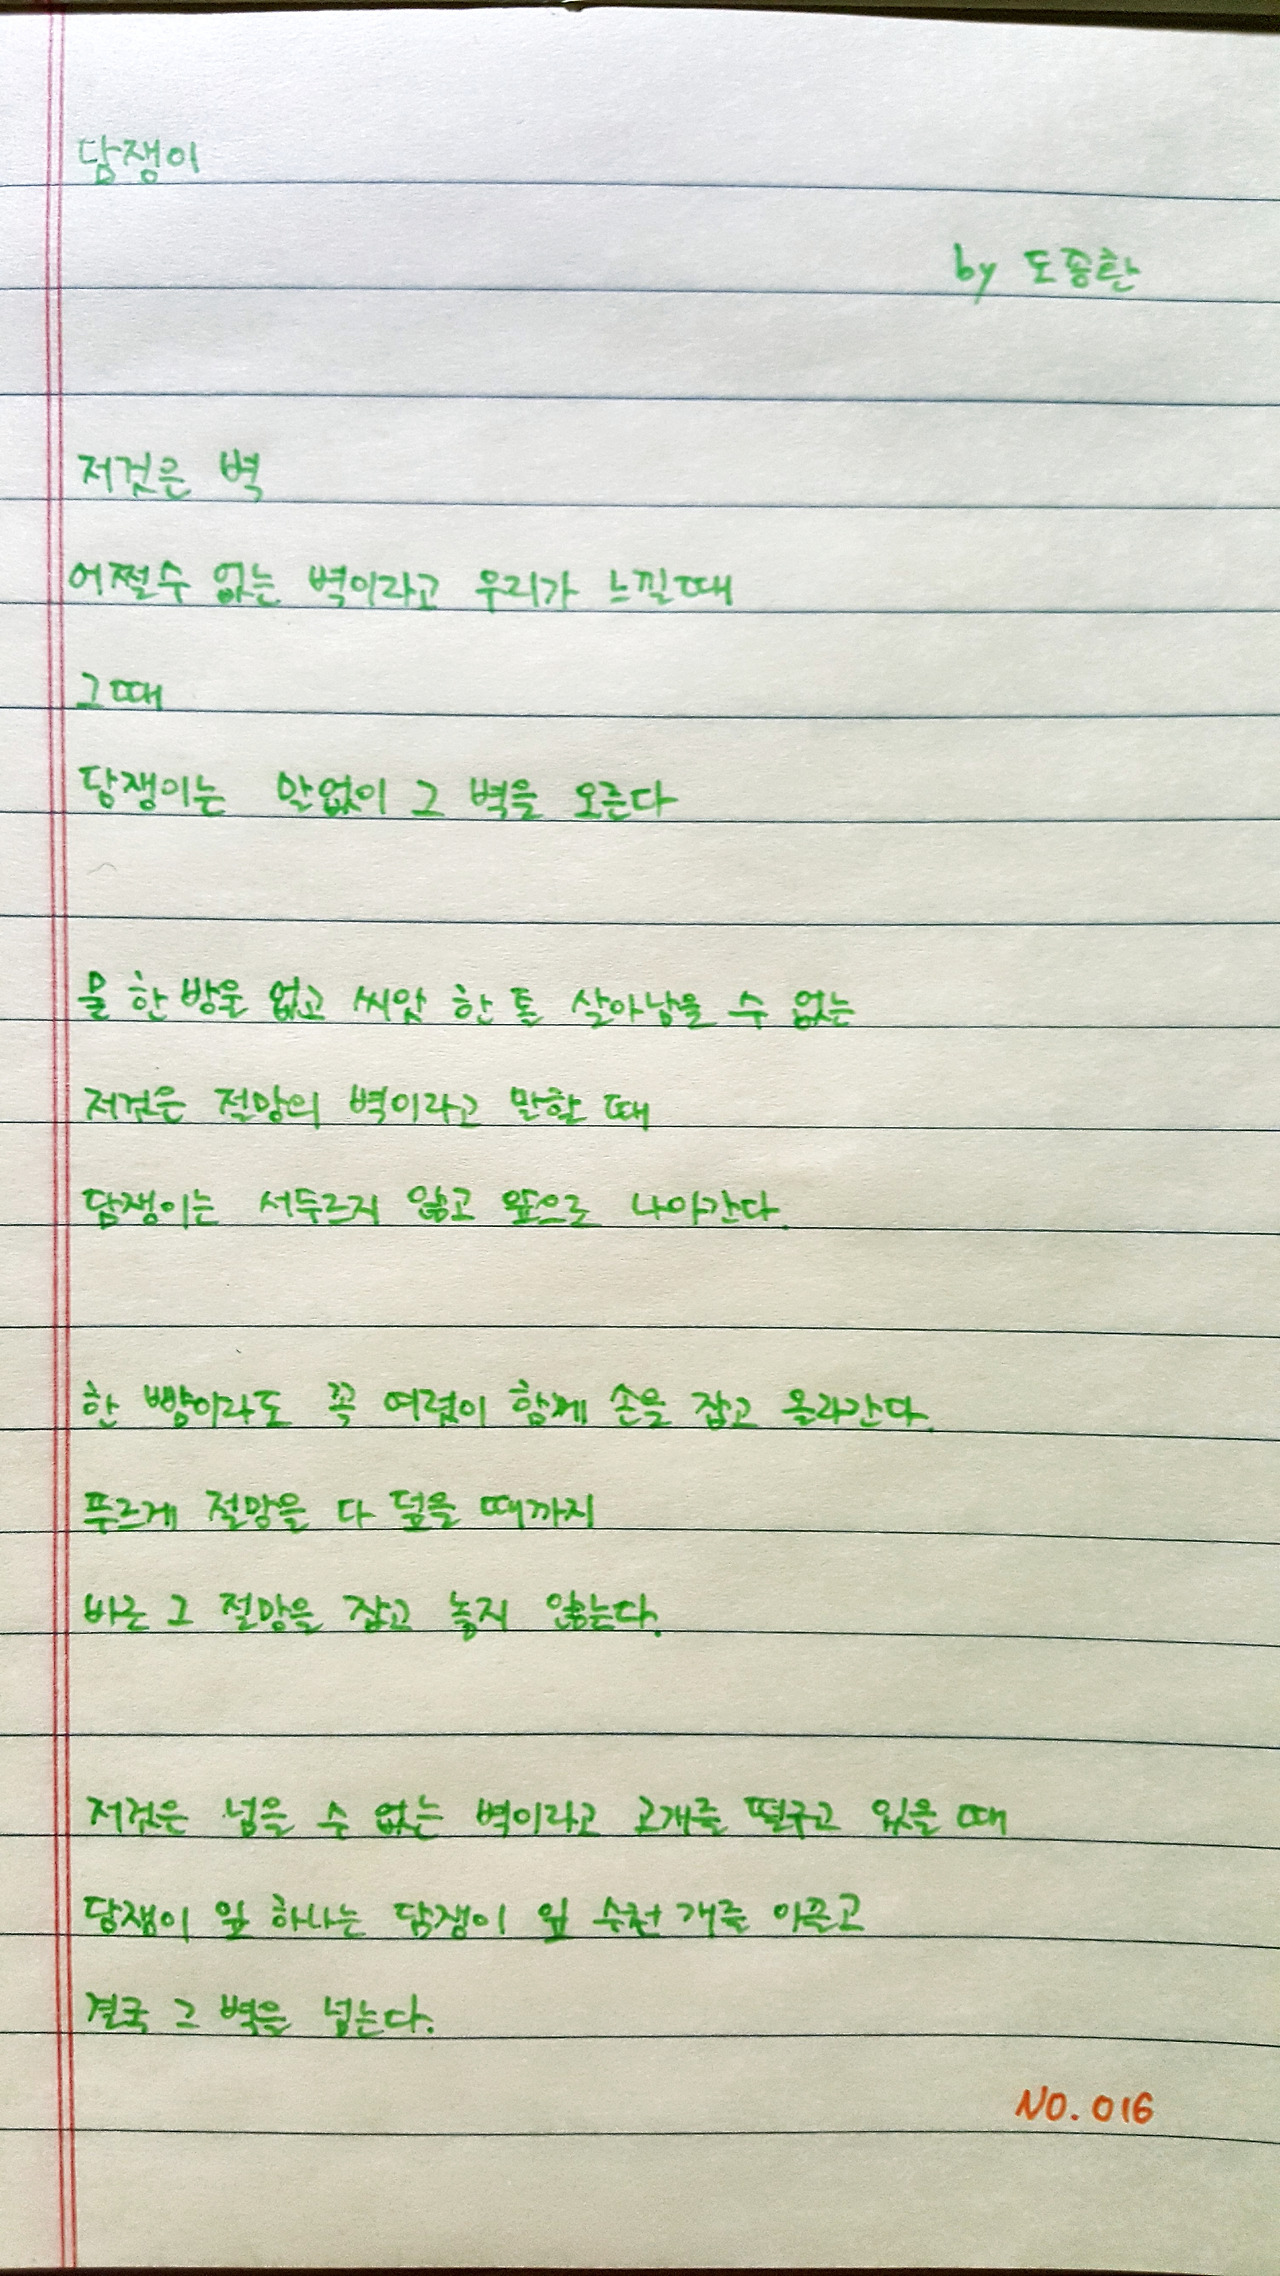 담쟁이
by 도종환
저것은 벽
어쩔수 없는 벽이라고 우리가 느낄때
그때
담쟁이는 말없이 그 벽을 오른다
물 한 방울 없고 씨앗 한 톨 살아남을 수 없는
저것은 절망의 벽이라고 말할 때
담쟁이는 서두르지 않고 앞으로 나아간다.
한 뼘이라도 꼭 여럿이 함께 손을 잡고 올라간다.
푸르게 절망을 다 덮을 때까지
바로 그 절망을 잡고 놓지 않는다.
저것은 넘을 수 없는 벽이라고 고개를 떨구고 있을 때
담쟁이 잎 하나는 담쟁이 잎 수천 개를 이끌고
결국 그 벽을 넘는다.
NO. 016